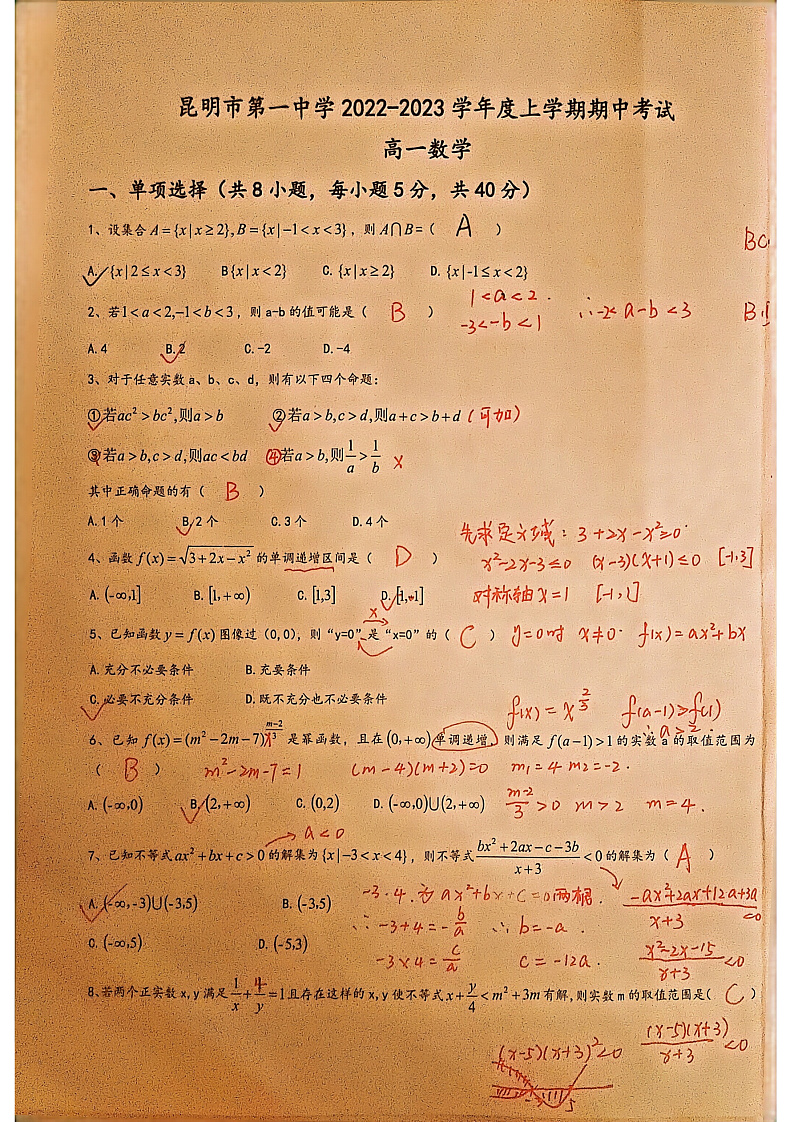 昆明市第一中学 2022-2023 学年度上学期期中考试
高一数学
一、单项选择（共 8 小题，每小题 5 分，共 40 分）
1、设集合 A={x|x≥2},B={x|-1<x<3}，则 A∩B=（ A ）
A. {x|2≤x<3} B{x|x<2} C. {x|x≥2} D. {x|-1≤x<2}
BC
1<a<2.
2、若1<a<2,-1<b<3，则 a-b 的值可能是（ B ）
-3<-b<1 ∴-2<a-b<3
A. 4 B. 2 C. -2 D. -4
3、对于任意实数 a、b、c、d，则有以下四个命题：
①若ac²>bc²,则a>b ②若a>b,c>d,则a+c>b+d（可加）
③若a>b,c>d,则ac<bd ④若a>b,则1/a>1/b ×
其中正确命题的有（ B ）
A. 1 个 B. 2 个 C. 3 个 D. 4 个
先求定义域：3+2x-x²≥0.
4、函数 f(x)=√(3+2x-x²) 的单调递增区间是（ D ）
x²-2x-3≤0 (x-3)(x+1)≤0 [-1,3]
A. (-∞,1] B. [1,+∞) C. [1,3] D. [-1,1]
对称轴 x=1 [-1,1]
5、已知函数 y=f(x) 图像过（0,0），则“y=0”是“x=0”的（ C ）
y=0时 x≠0. f(x)=ax²+bx
A. 充分不必要条件 B. 充要条件
C. 必要不充分条件 D. 既不充分也不必要条件
f(x)=x^(2/3) f(a-1)>f(1)
∴a>2.
6、已知 f(x)=(m²-2m-7)x^((m-2)/3) 是幂函数，且在 (0,+∞) 单调递增，则满足 f(a-1)>1 的实数 a 的取值范围为
（ B ） m²-2m-7=1 (m-4)(m+2)=0 m₁=4 m₂=-2.
A. (-∞,0) B. (2,+∞) C. (0,2) D. (-∞,0)∪(2,+∞)
(m-2)/3>0 m>2 m=4.
a<0
7、已知不等式ax²+bx+c>0的解集为{x|-3<x<4}，则不等式(bx²+2ax-c-3b)/(x+3)<0的解集为（ A ）
A. (-∞,-3)∪(-3,5) B. (-3,5)
-3.4.为ax²+bx+c=0两根. (-ax²+2ax+12a+3a)/(x+3)<0
∴-3+4=-b/a ∴b=-a.
C. (-∞,5) D. (-5,3)
-3×4=c/a c=-12a. (x²-2x-15)/(x+3)<0
8、若两个正实数 x,y 满足 1/x+4/y=1 且存在这样的 x,y 使不等式 x+y/4<m²+3m 有解，则实数 m 的取值范围是（ C ）
(x-5)(x+3)²<0 (x-5)(x+3)/(x+3)<0
-3 5